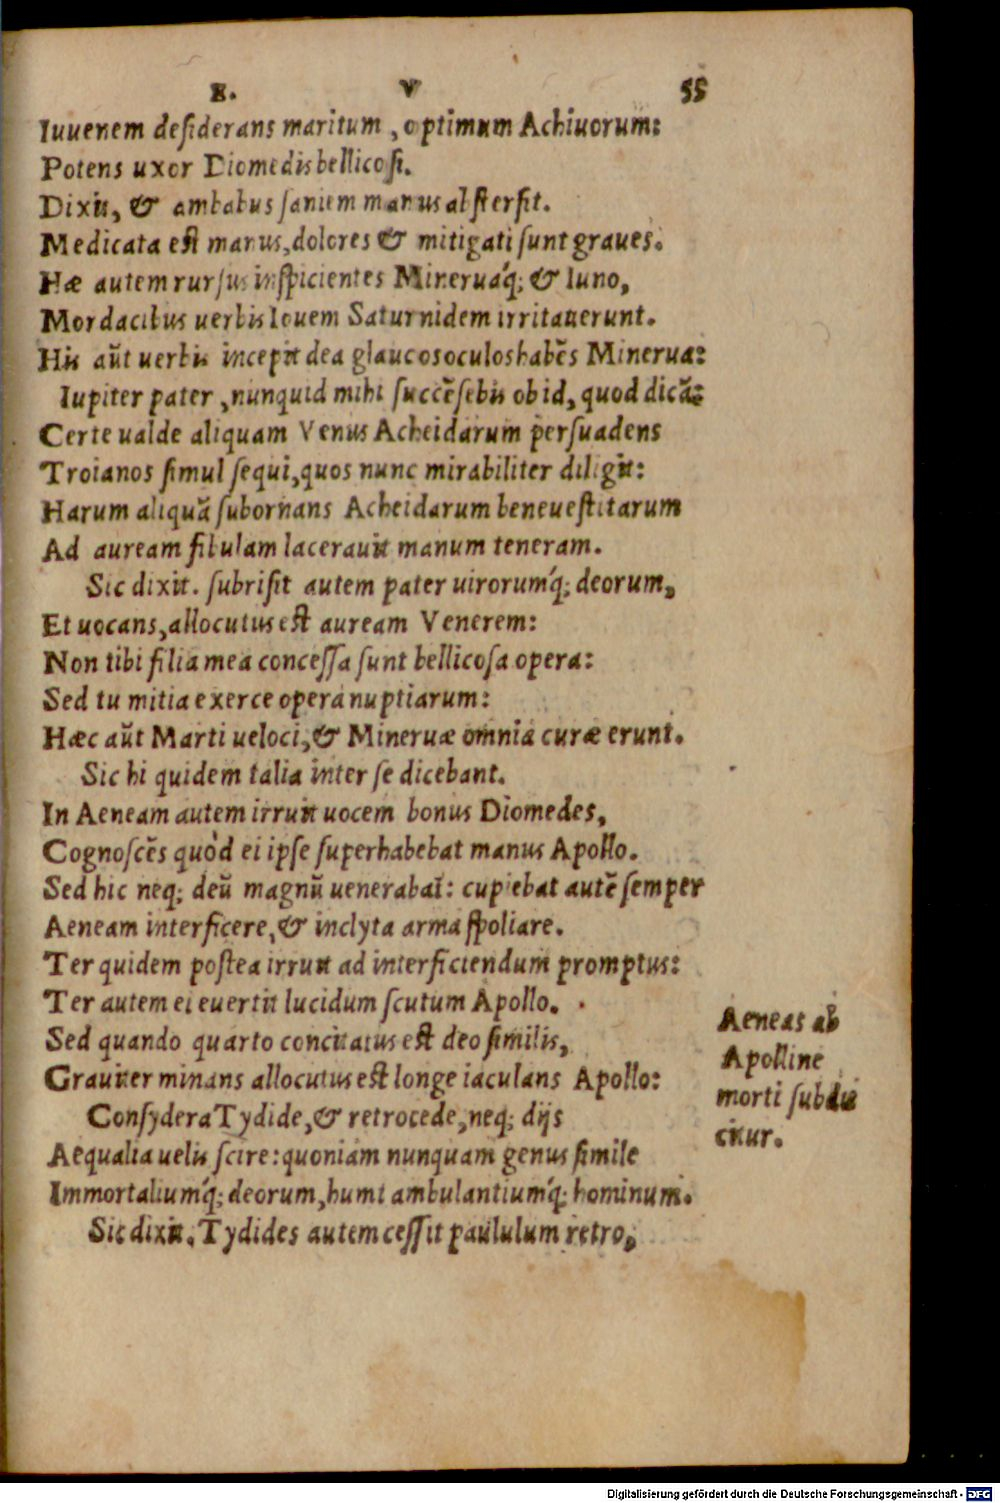 E. V 55
Iuuenem desiderans maritum, optimum Achiuorum:
Potens uxor Diomedis bellicosi.
Dixit, & ambabus saniem manus abstersit.
Medicata est manus, dolores & mitigati sunt graues.
Hæ autem rursus inspicientes Mineruáq; & Iuno,
Mordacibus uerbis Iouem Saturnidem irritauerunt.
His aūt uerbis incepit dea glaucos oculos habēs Minerua:
Iupiter pater, nunquid mihi succēsebis ob id, quod dicā:
Certe ualde aliquam Venus Acheidarum persuadens
Troianos simul sequi, quos nunc mirabiliter diligit:
Harum aliquā subornans Acheidarum beneuestitarum
Ad auream fibulam lacerauit manum teneram.
Sic dixit. subrisit autem pater uirorumq́; deorum,
Et uocans, allocutus est auream Venerem:
Non tibi filia mea concessa sunt bellicosa opera:
Sed tu mitia exerce opera nuptiarum:
Hæc aūt Marti ueloci, & Mineruæ omnia curæ erunt.
Sic hi quidem talia inter se dicebant.
In Aeneam autem irruit uocem bonus Diomedes,
Cognoscēs quòd ei ipse superhabebat manus Apollo.
Sed hic neq; deū magnū uenerabat̄: cupiebat autē semper
Aeneam interficere, & inclyta arma spoliare.
Ter quidem postea irruit ad interficiendum promptus:
Ter autem ei euertit lucidum scutum Apollo.
Sed quando quarto concitatus est deo similis,
Grauiter minans allocutus est longe iaculans Apollo:
Consydera Tydide, & retrocede, neq; dijs
Aequalia uelis scire: quoniam nunquam genus simile
Immortaliumq́; deorum, humi ambulantiumq́; hominum.
Sic dixit. Tydides autem cessit paululum retro,
Aeneas ab
Apolline
morti subdu
citur.
Digitalisierung gefördert durch die Deutsche Forschungsgemeinschaft - DFG